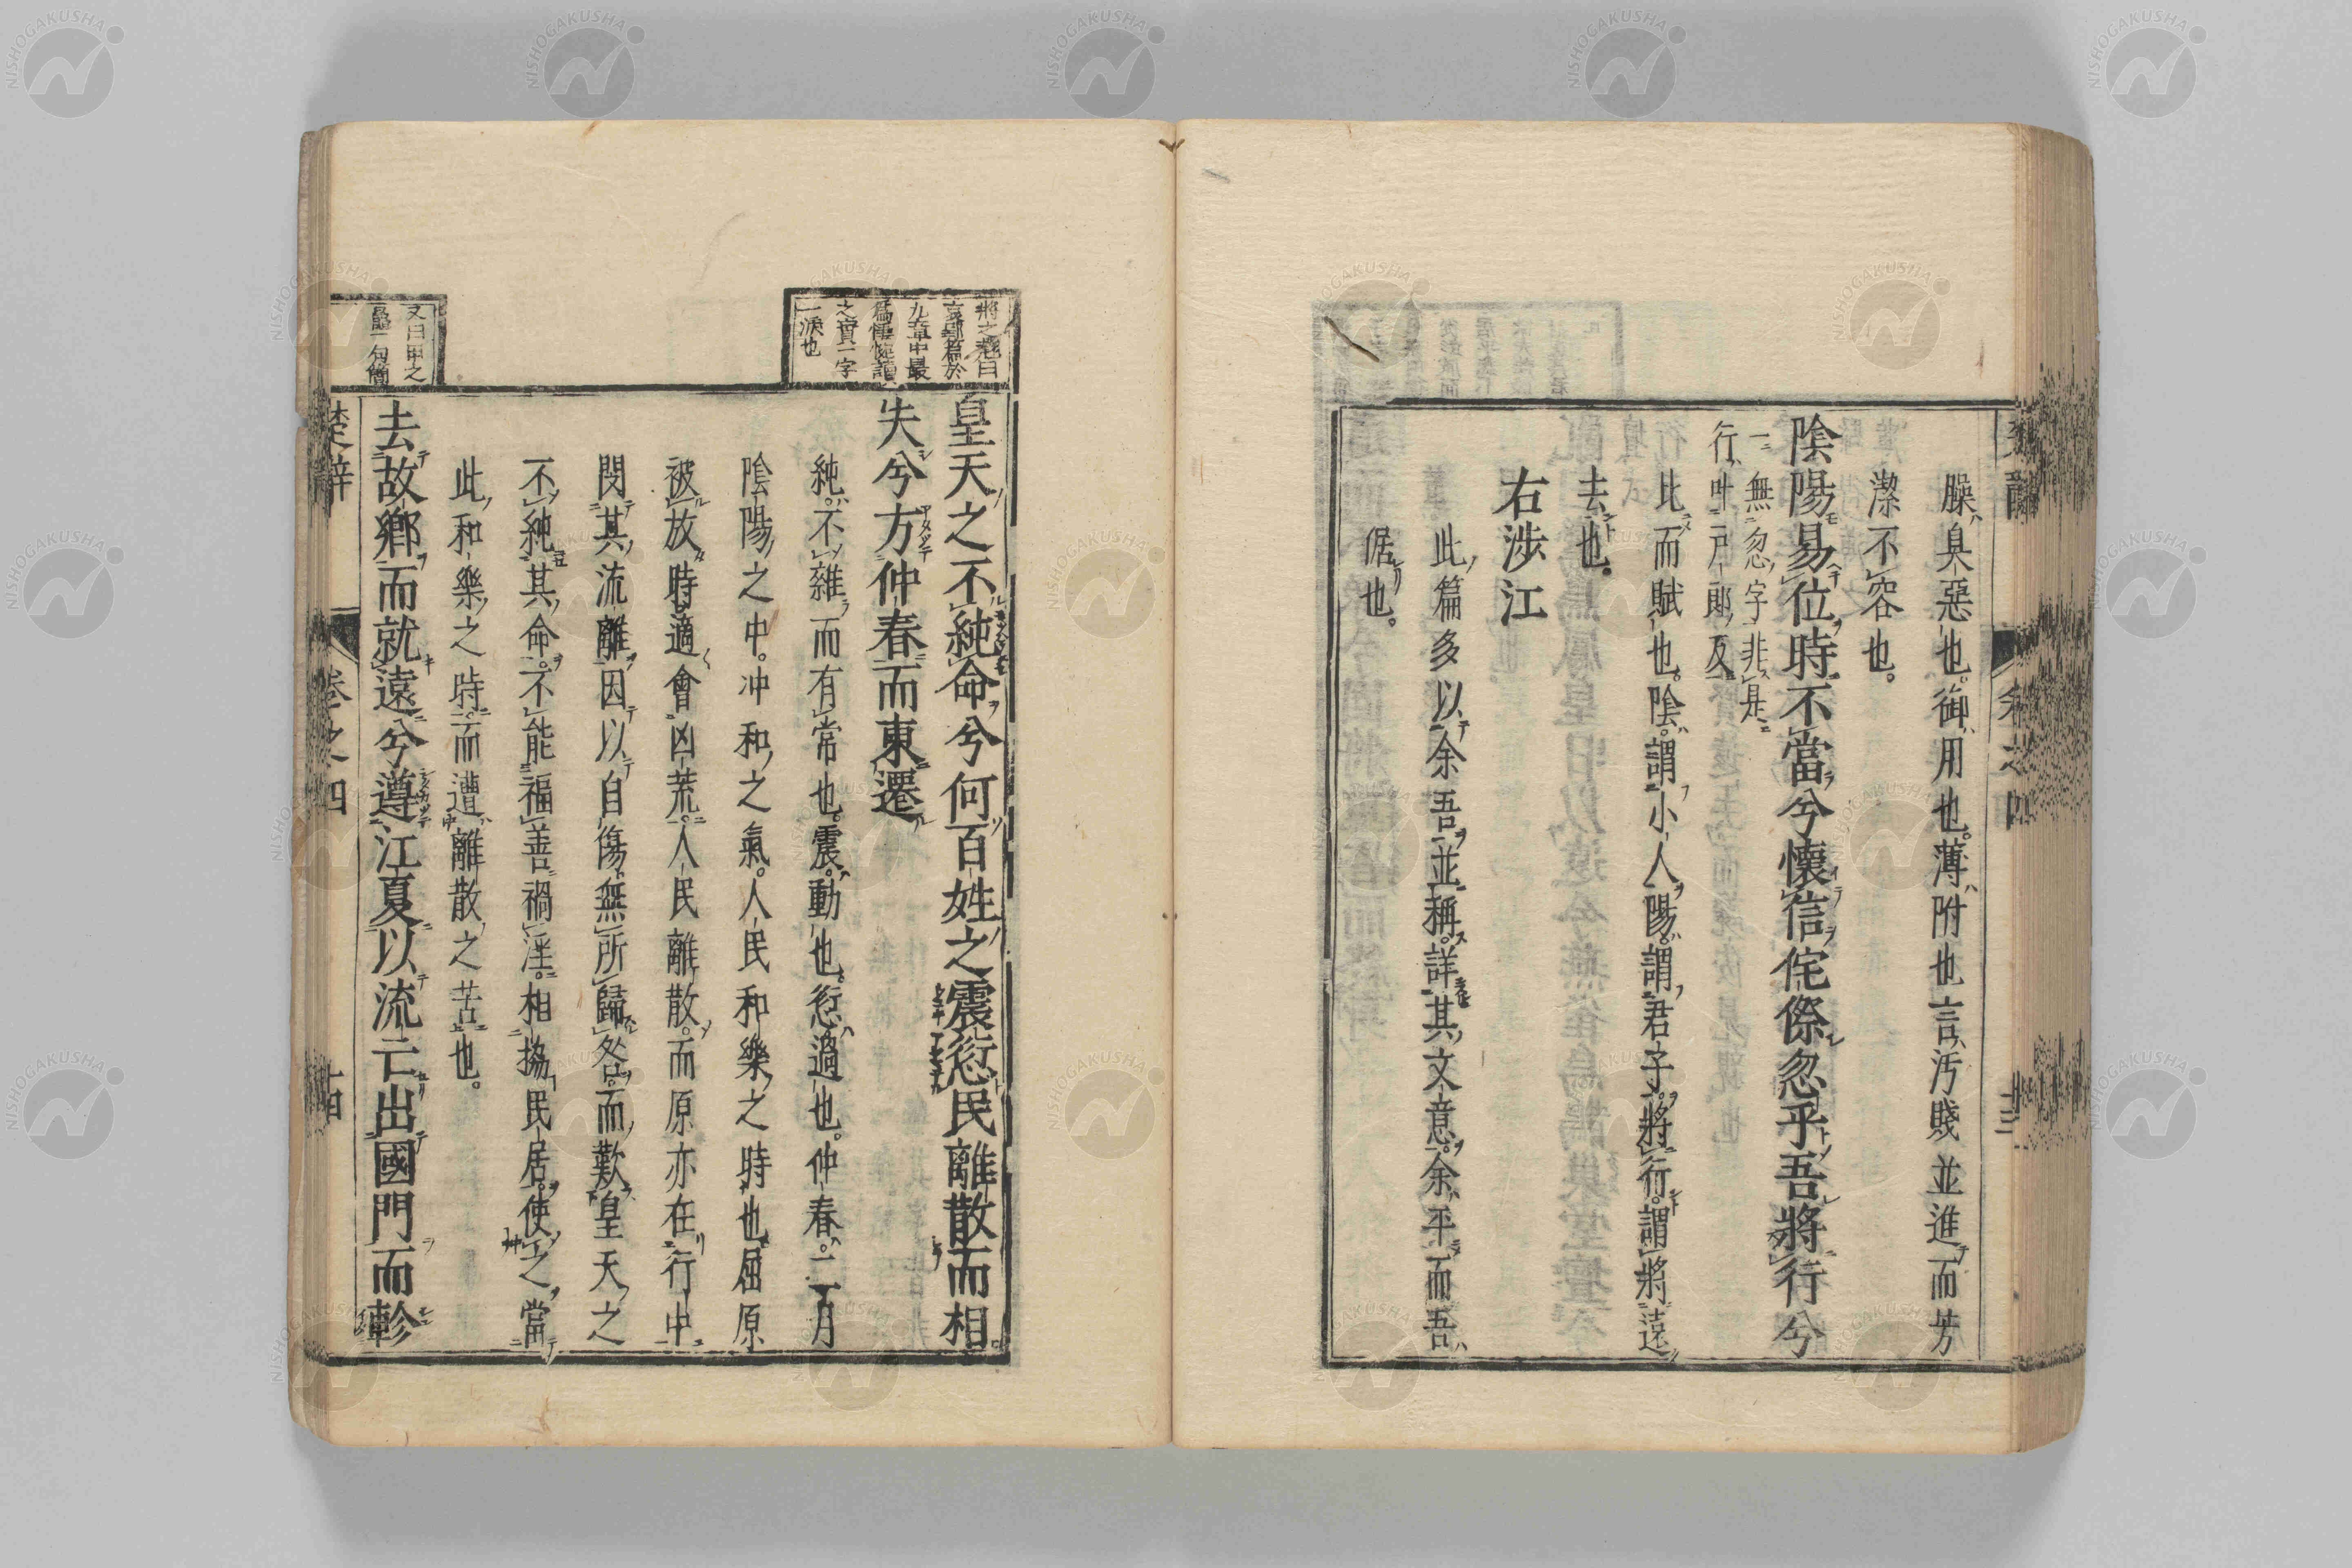 臊臭惡也。御用也。薄附也言汚賤並進而芳
潔不容也。
陰陽易位時不當兮懷信侘傺忽乎吾將行兮
一無忽字非是
行叶戸郎反
比而賦也。陰謂小人陽謂君子。將行謂將遠
去也。
右涉江
此篇多以余吾並稱。詳其文意。余平而吾
倨也。
將之翹曰
哀郢篇於
九章中最
爲悽惋讀
之實一字
一淚也
皇天之不純命兮何百姓之震愆民離散而相
失兮方仲春而東遷
純不雜而有常也。震動也。愆過也。仲春。二月
陰陽之中。冲和之氣。人民和樂之時也屈原
被放時適會凶荒。人民離散。而原亦在行中
閔其流離因以自傷無所歸咎。而歎皇天之
不純其命。不能福善禍淫。相協民居。使之當
此和樂之時。而遭離散之苦也。
又曰甲之
鼂一句簡
去故鄉而就遠兮遵江夏以流亡出國門而軫
楚辭
卷之四
十四
NISHOGAKUSHA